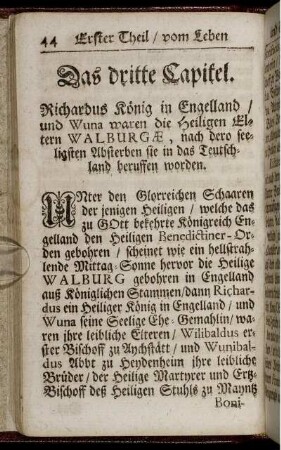 44 Erster Theil / vom Leben
Das dritte Capitel.
Richardus König in Engelland /
und Wuna waren die Heiligen El-
tern WALBURGÆ, nach dero see-
ligsten Absterben sie in das Teutsch-
land beruffen worden.
UNter den Glorreichen Schaaren
der jenigen Heiligen / welche das
zu GOtt bekehrte Königreich En-
gelland den Heiligen Benedictiner-Or-
den gebohren / scheinet wie ein hellstrah-
lende Mittag-Sonne hervor die Heilige
WALBURG gebohren in Engelland
auß Königlichen Stammen / dann Richar-
dus ein Heiliger König in Engelland / und
Wuna seine Seelige Ehe-Gemahlin / wa-
ren ihre leibliche Elteren / Wilibaldus er-
ster Bischoff zu Aychstätt / und Wunibal-
dus Abbt zu Heydenheim ihre leibliche
Brüder / der Heilige Martyrer und Ertz-
Bischoff deß Heiligen Stuhls zu Mayntz
Boni-